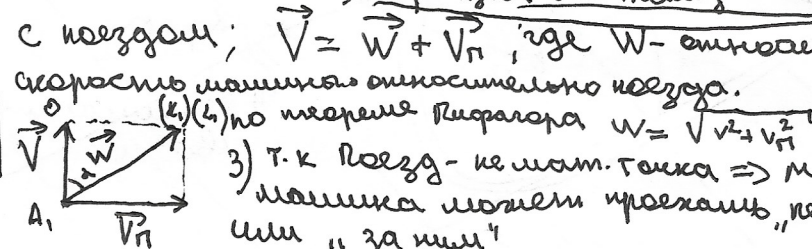 с поездом; V = W + Vп, где W -
скорость машины относительно поезда.
(K₁)(L₁) по теореме Пифагора W = √V² + Vп²
V W α
3) Т.К Поезд - не мат. точка =>
A₁ машина может проехать
Vп или "за ним"